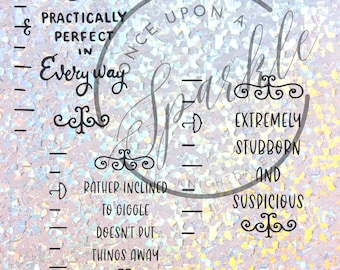 PRACTICALLY
PERFECT
IN
Every way
ONCE UPON A
Sparkle
EXTREMELY
STUBBORN
AND
SUSPICIOUS
RATHER INCLINED
TO GIGGLE
DOESN'T PUT
THINGS AWAY